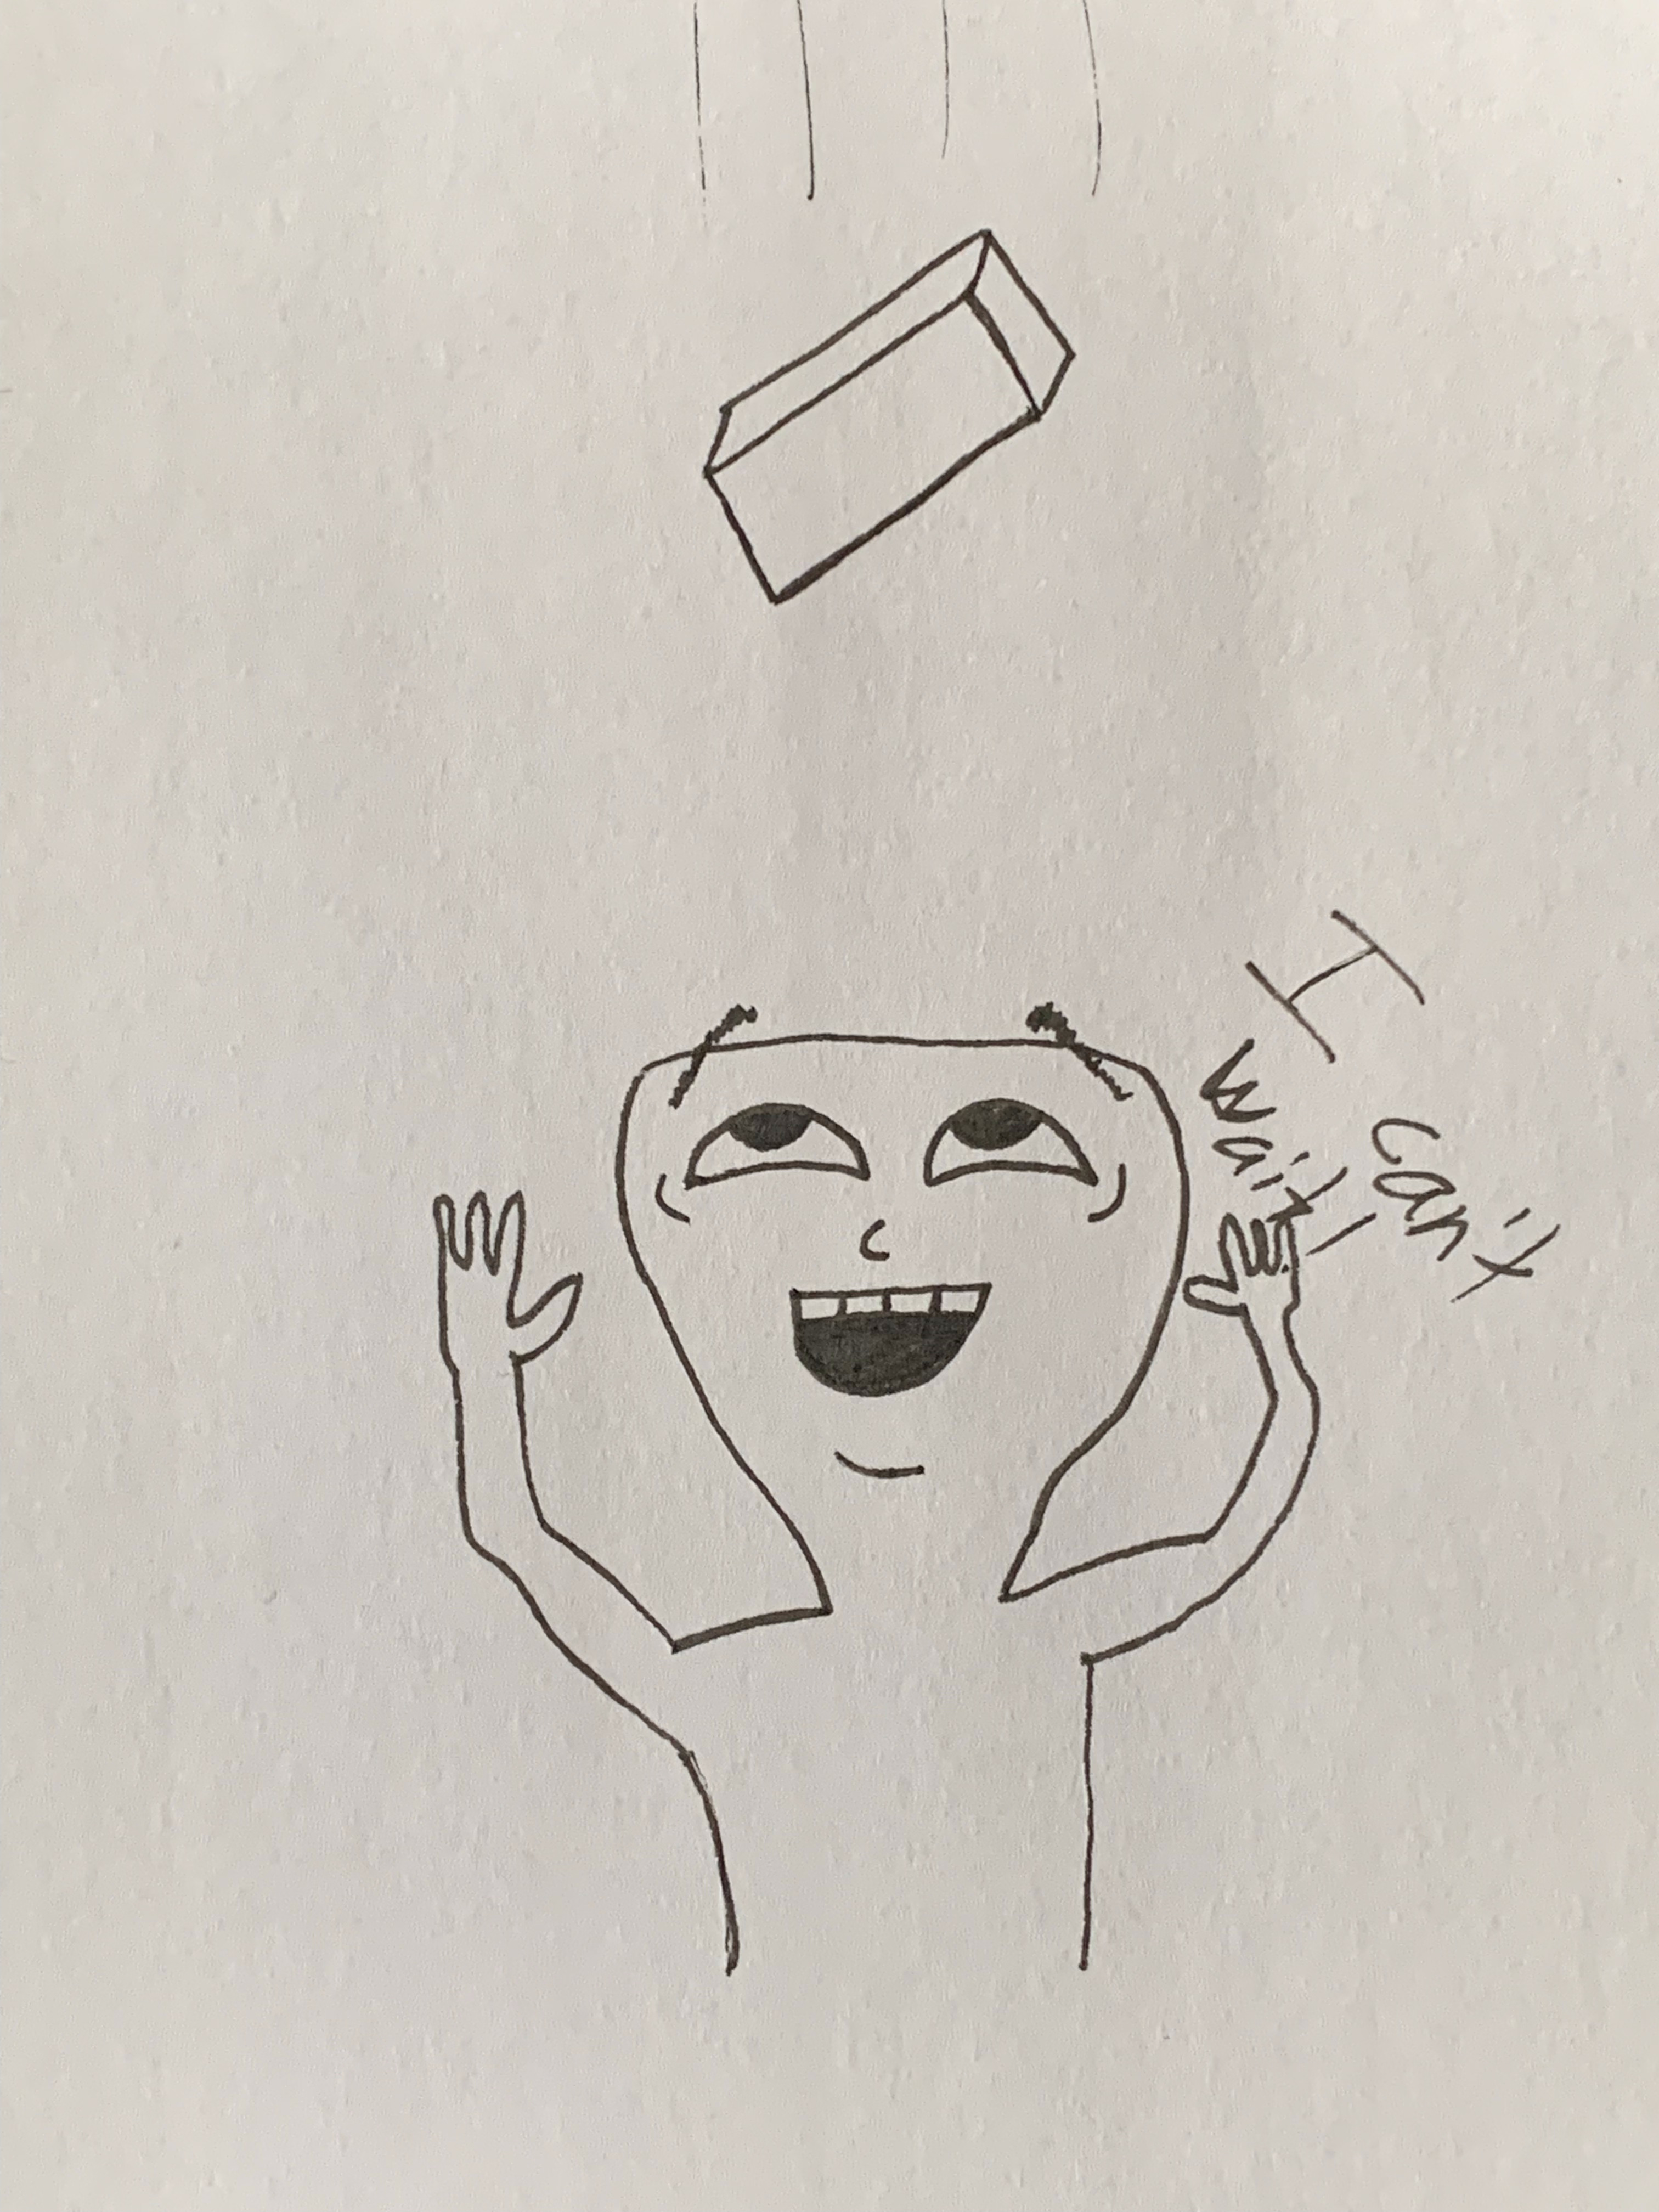 I can't
wait!